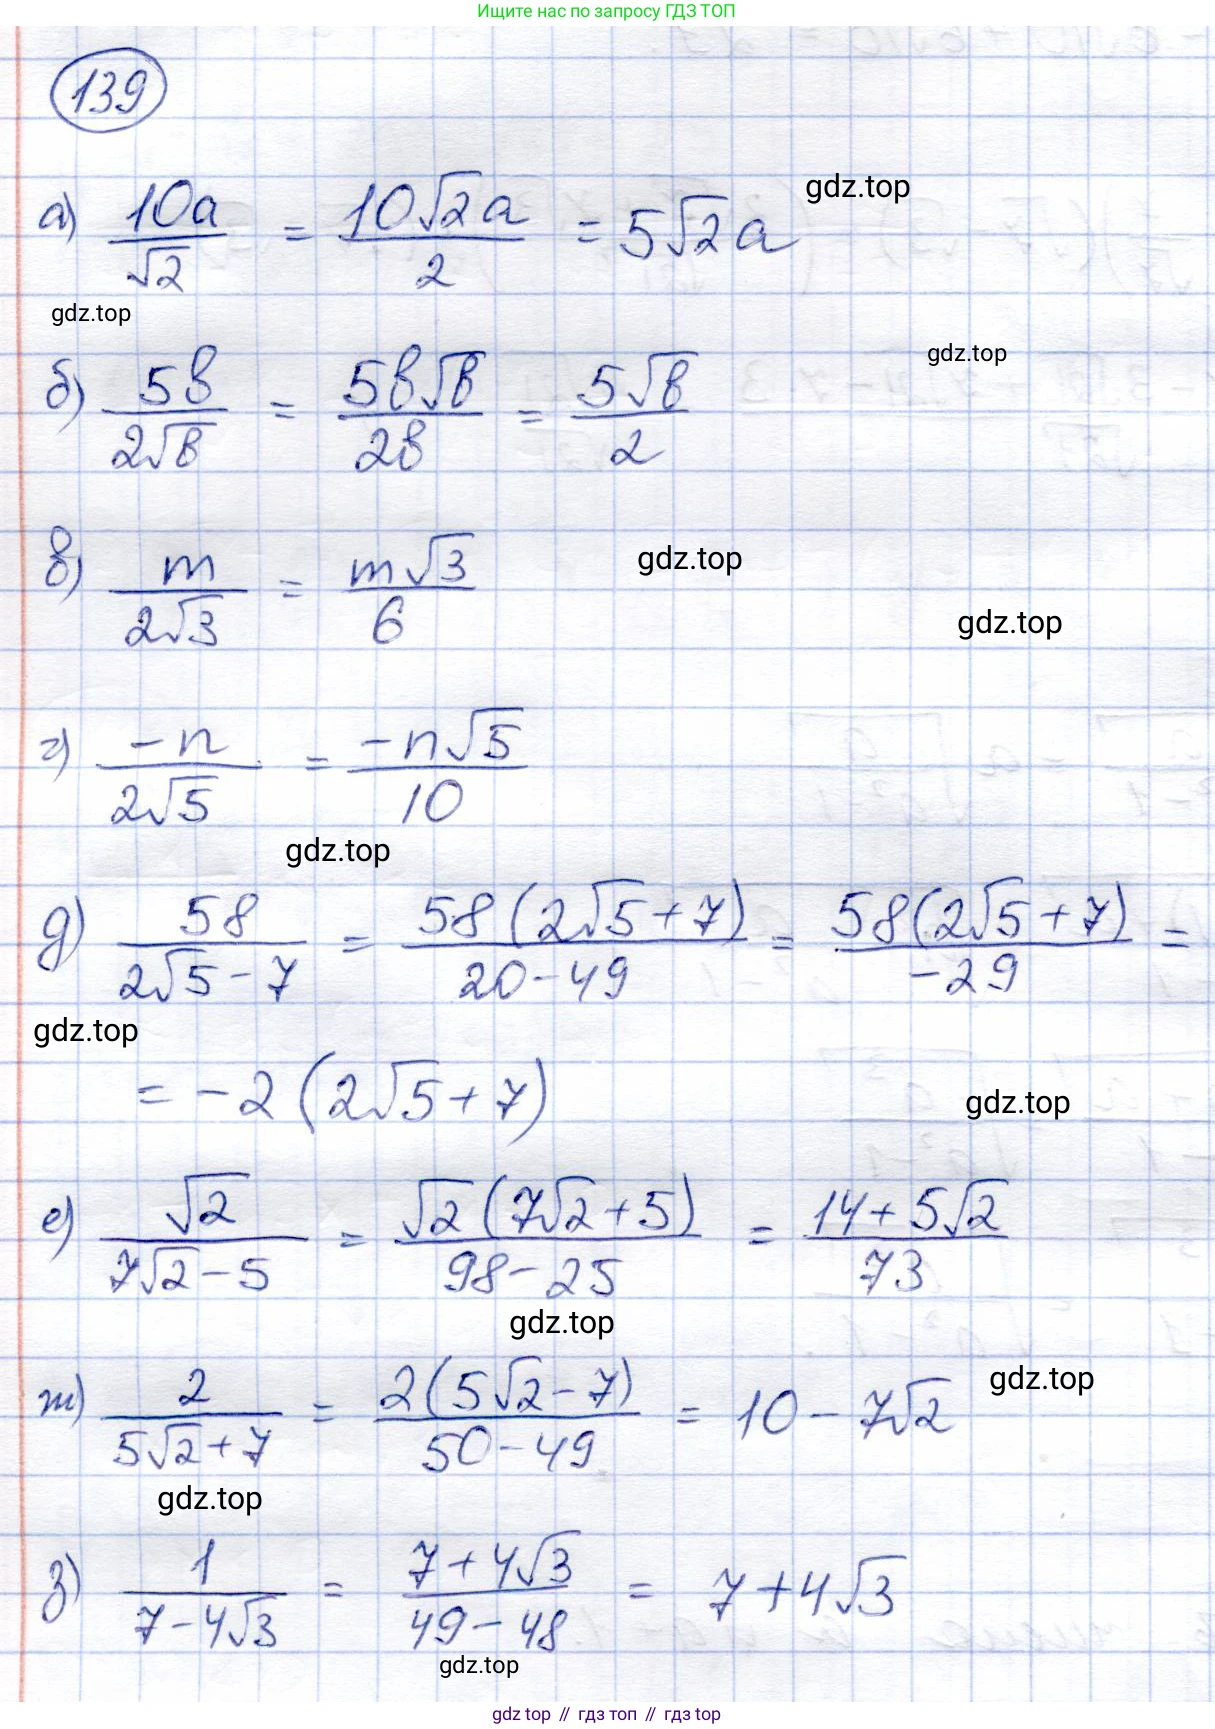 Ищите нас по запросу ГДЗ ТОП
139
а) 10a/√2 = 10√2a/2 = 5√2a
gdz.top
gdz.top
б) 5b/2√b = 5b√b/2b = 5√b/2
gdz.top
в) m/2√3 = m√3/6
gdz.top
gdz.top
г) -n/2√5 = -n√5/10
gdz.top
д) 58/(2√5-7) = 58(2√5+7)/(20-49) = 58(2√5+7)/-29 =
gdz.top
= -2(2√5+7)
gdz.top
е) √2/(7√2-5) = √2(7√2+5)/(98-25) = (14+5√2)/73
gdz.top
ж) 2/(5√2+7) = 2(5√2-7)/(50-49) = 10-7√2
gdz.top
gdz.top
з) 1/(7-4√3) = (7+4√3)/(49-48) = 7+4√3
gdz.top
gdz.top // гдз топ // гдз top